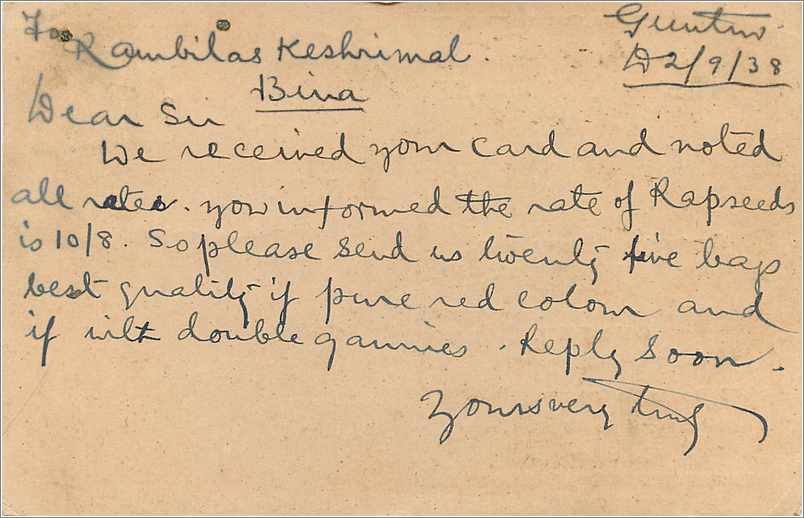 To
Rambilas Keshrimal.
Guntur
D 2/9/38
Bina
Dear Sir
We received your card and noted
all rates. you informed the rate of Rapseeds
is 10/8. So please send us twenty five bags
best quality if pure red colour and
if with double gannies. Reply soon.
Yours very truly